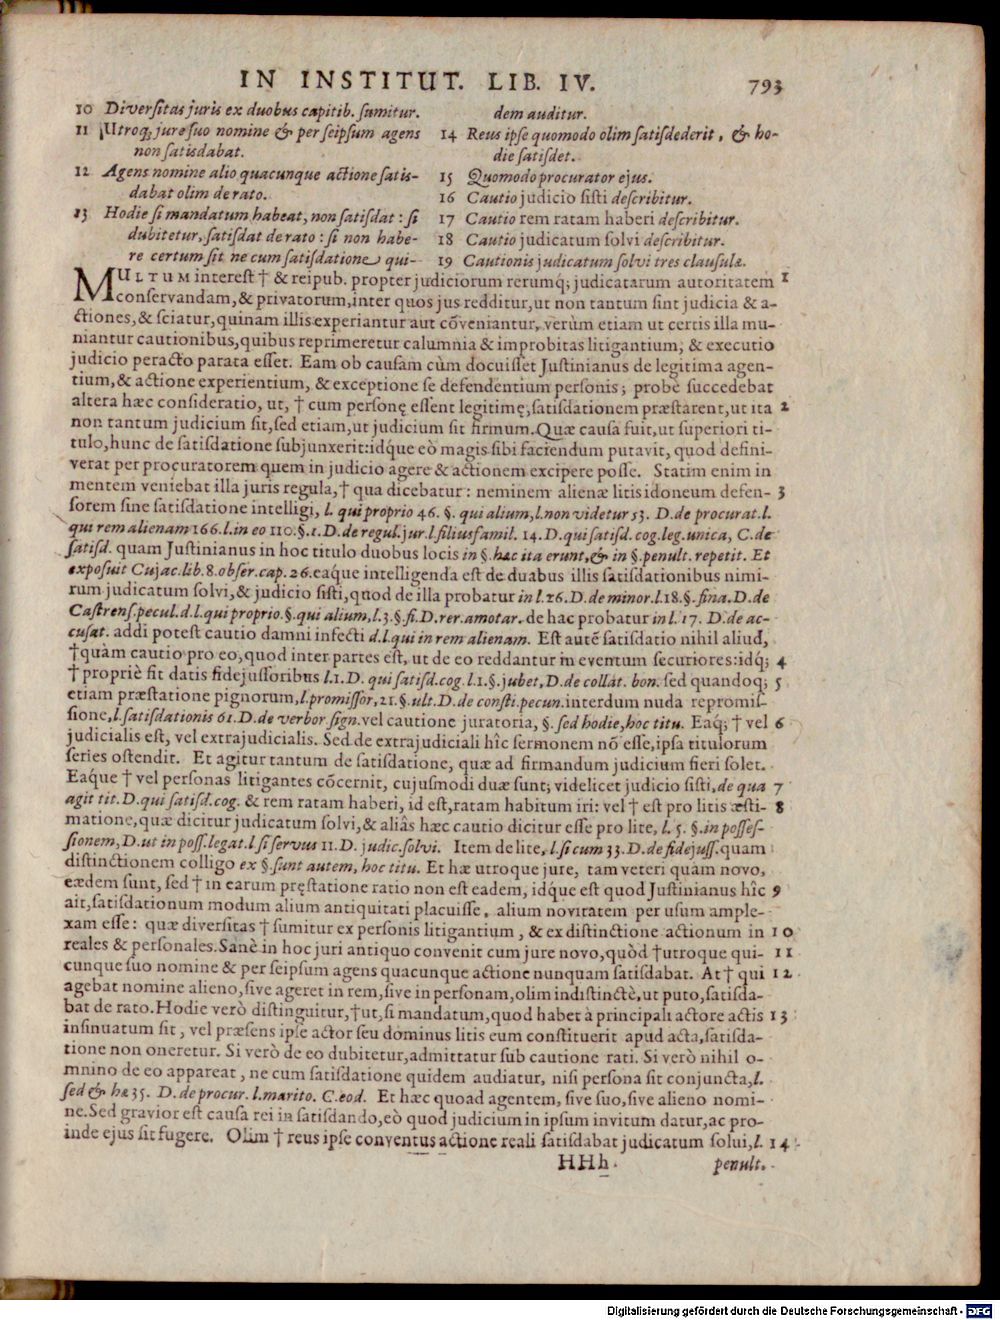 IN INSTITUT. LIB. IV. 793
10 Diversitas juris ex duobus capitib. sumitur.
11 Utroq; jure suo nomine & per seipsum agens
non satisdabat.
12 Agens nomine alio quacunque actione satis-
dabat olim de rato.
13 Hodie si mandatum habeat, non satisdat : si
dubitetur, satisdat de rato : si non habe-
re certum sit ne cum satisdatione qui-
dem auditur.
14 Reus ipse quomodo olim satisdederit, & ho-
die satisdet.
15 Quomodo procurator ejus.
16 Cautio judicio sisti describitur.
17 Cautio rem ratam haberi describitur.
18 Cautio judicatum solvi describitur.
19 Cautionis judicatum solvi tres clausulæ.
MULTUM interest † & reipub. propter judiciorum rerumq; judicatarum autoritatem 1
conservandam, & privatorum, inter quos jus redditur, ut non tantum sint judicia & a-
ctiones, & sciatur, quinam illis experiantur aut cõveniantur, verùm etiam ut certis illa mu-
niantur cautionibus, quibus reprimeretur calumnia & improbitas litigantium; & executio
judicio peracto parata esset. Eam ob causam cùm docuisset Justinianus de legitima agen-
tium, & actione experientium, & exceptione se defendentium personis; probè succedebat
altera hæc consideratio, ut, † cum personę essent legitimę, satisdationem præstarent, ut ita 2
non tantum judicium sit, sed etiam, ut judicium sit firmum. Quæ causa fuit, ut superiori ti-
tulo, hunc de satisdatione subjunxerit: idq́ue eò magis sibi faciendum putavit, quod defini-
verat per procuratorem quem in judicio agere & actionem excipere posse. Statim enim in
mentem veniebat illa juris regula, † qua dicebatur : neminem alienæ litis idoneum defen- 3
sorem sine satisdatione intelligi, l. qui proprio 46. §. qui alium, l. non videtur 53. D. de procurat. l.
qui rem alienam 166. l. in eo 110. §. 1. D. de regul. jur. l. filiusfamil. 14. D. qui satisd. cog. leg. unica, C. de
satisd. quam Justinianus in hoc titulo duobus locis in §. hæc ita erunt, & in §. penult. repetit. Et
exposuit Cujac. lib. 8. obser. cap. 26. eaque intelligenda est de duabus illis satisdationibus nimi-
rum judicatum solvi, & judicio sisti, quod de illa probatur in l. 26. D. de minor. l. 18. §. fina. D. de
Castrens. pecul. d. l. qui proprio. §. qui alium, l. 3. §. fi. D. rer. amotar. de hac probatur in l. 17. D. de ac-
cusat. addi potest cautio damni infecti d. l. qui in rem alienam. Est autē satisdatio nihil aliud,
† quàm cautio pro eo, quod inter partes est, ut de eo reddantur in eventum securiores: idq́; 4
† propriè fit datis fidejussoribus l. 1. D. qui satisd. cog. l. 1. §. jubet, D. de collat. bon. sed quandoq; 5
etiam præstatione pignorum, l. promissor, 21. §. ult. D. de consti. pecun. interdum nuda repromis-
sione, l. satisdationis 61. D. de verbor. sign. vel cautione juratoria, §. sed hodie, hoc titu. Eaq́; † vel 6
judicialis est, vel extrajudicialis. Sed de extrajudiciali hîc sermonem nõ esse, ipsa titulorum
series ostendit. Et agitur tantum de satisdatione, quæ ad firmandum judicium fieri solet.
Eaque † vel personas litigantes cõcernit, cujusmodi duæ sunt; videlicet judicio sisti, de qua 7
agit tit. D. qui satisd. cog. & rem ratam haberi, id est, ratam habitum iri: vel † est pro litis æsti- 8
matione, quæ dicitur judicatum solvi, & aliâs hæc cautio dicitur esse pro lite, l. 5. §. in posses-
sionem, D. ut in poss. legat. l. si servus 11. D. judic. solvi. Item de lite, l. si cum 33. D. de fidejuss. quam
distinctionem colligo ex §. sunt autem, hoc titu. Et hæ utroque jure, tam veteri quàm novo,
eædem sunt, sed † in earum pręstatione ratio non est eadem, idq́ue est quod Justinianus hîc 9
ait, satisdationum modum alium antiquitati placuisse, alium novitatem per usum ample-
xam esse : quæ diversitas † sumitur ex personis litigantium, & ex distinctione actionum in 10
reales & personales. Sanè in hoc juri antiquo convenit cum jure novo, quòd † utroque qui- 11
cunque suo nomine & per seipsum agens quacunque actione nunquam satisdabat. At † qui 12
agebat nomine alieno, sive ageret in rem, sive in personam, olim indistinctè, ut puto, satisda-
bat de rato. Hodie verò distinguitur, † ut, si mandatum, quod habet à principali actore actis 13
insinuatum sit, vel præsens ipse actor seu dominus litis eum constituerit apud acta, satisda-
tione non oneretur. Si verò de eo dubitetur, admittatur sub cautione rati. Si verò nihil o-
mnino de eo appareat, ne cum satisdatione quidem audiatur, nisi persona sit conjuncta, l.
sed & hæ 35. D. de procur. l. marito. C. eod. Et hæc quoad agentem, sive suo, sive alieno nomi-
ne. Sed gravior est causa rei in satisdando, eò quod judicium in ipsum invitum datur, ac pro-
inde ejus sit fugere. Olim † reus ipse conventus actione reali satisdabat judicatum solui, l. 14
HHh penult.
Digitalisierung gefördert durch die Deutsche Forschungsgemeinschaft - DFG